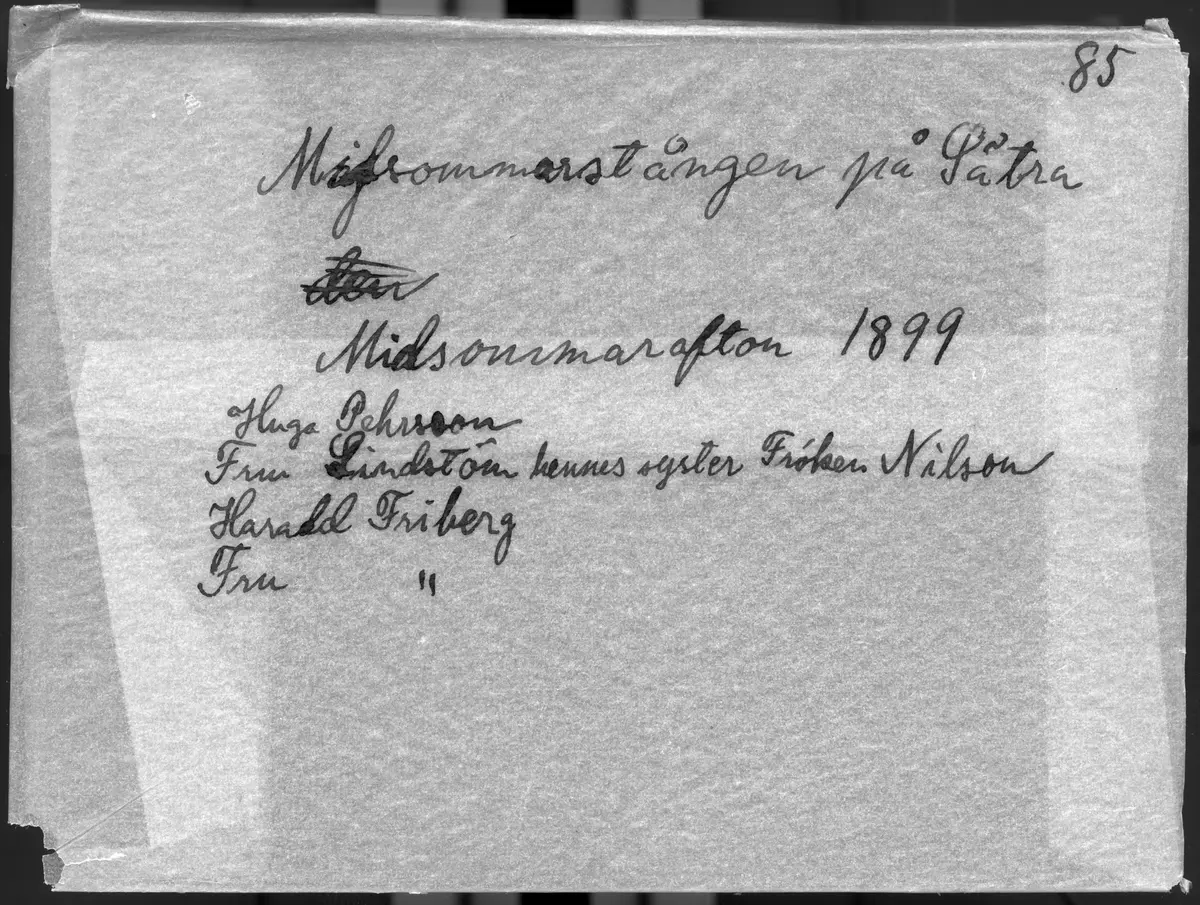 85
Midsommarstången på Sätra
den
Midsommarafton 1899
Hugo Pehrsson
Fru Lindstöm hennes syster Fröken Nilson
Harald Friberg
Fru "